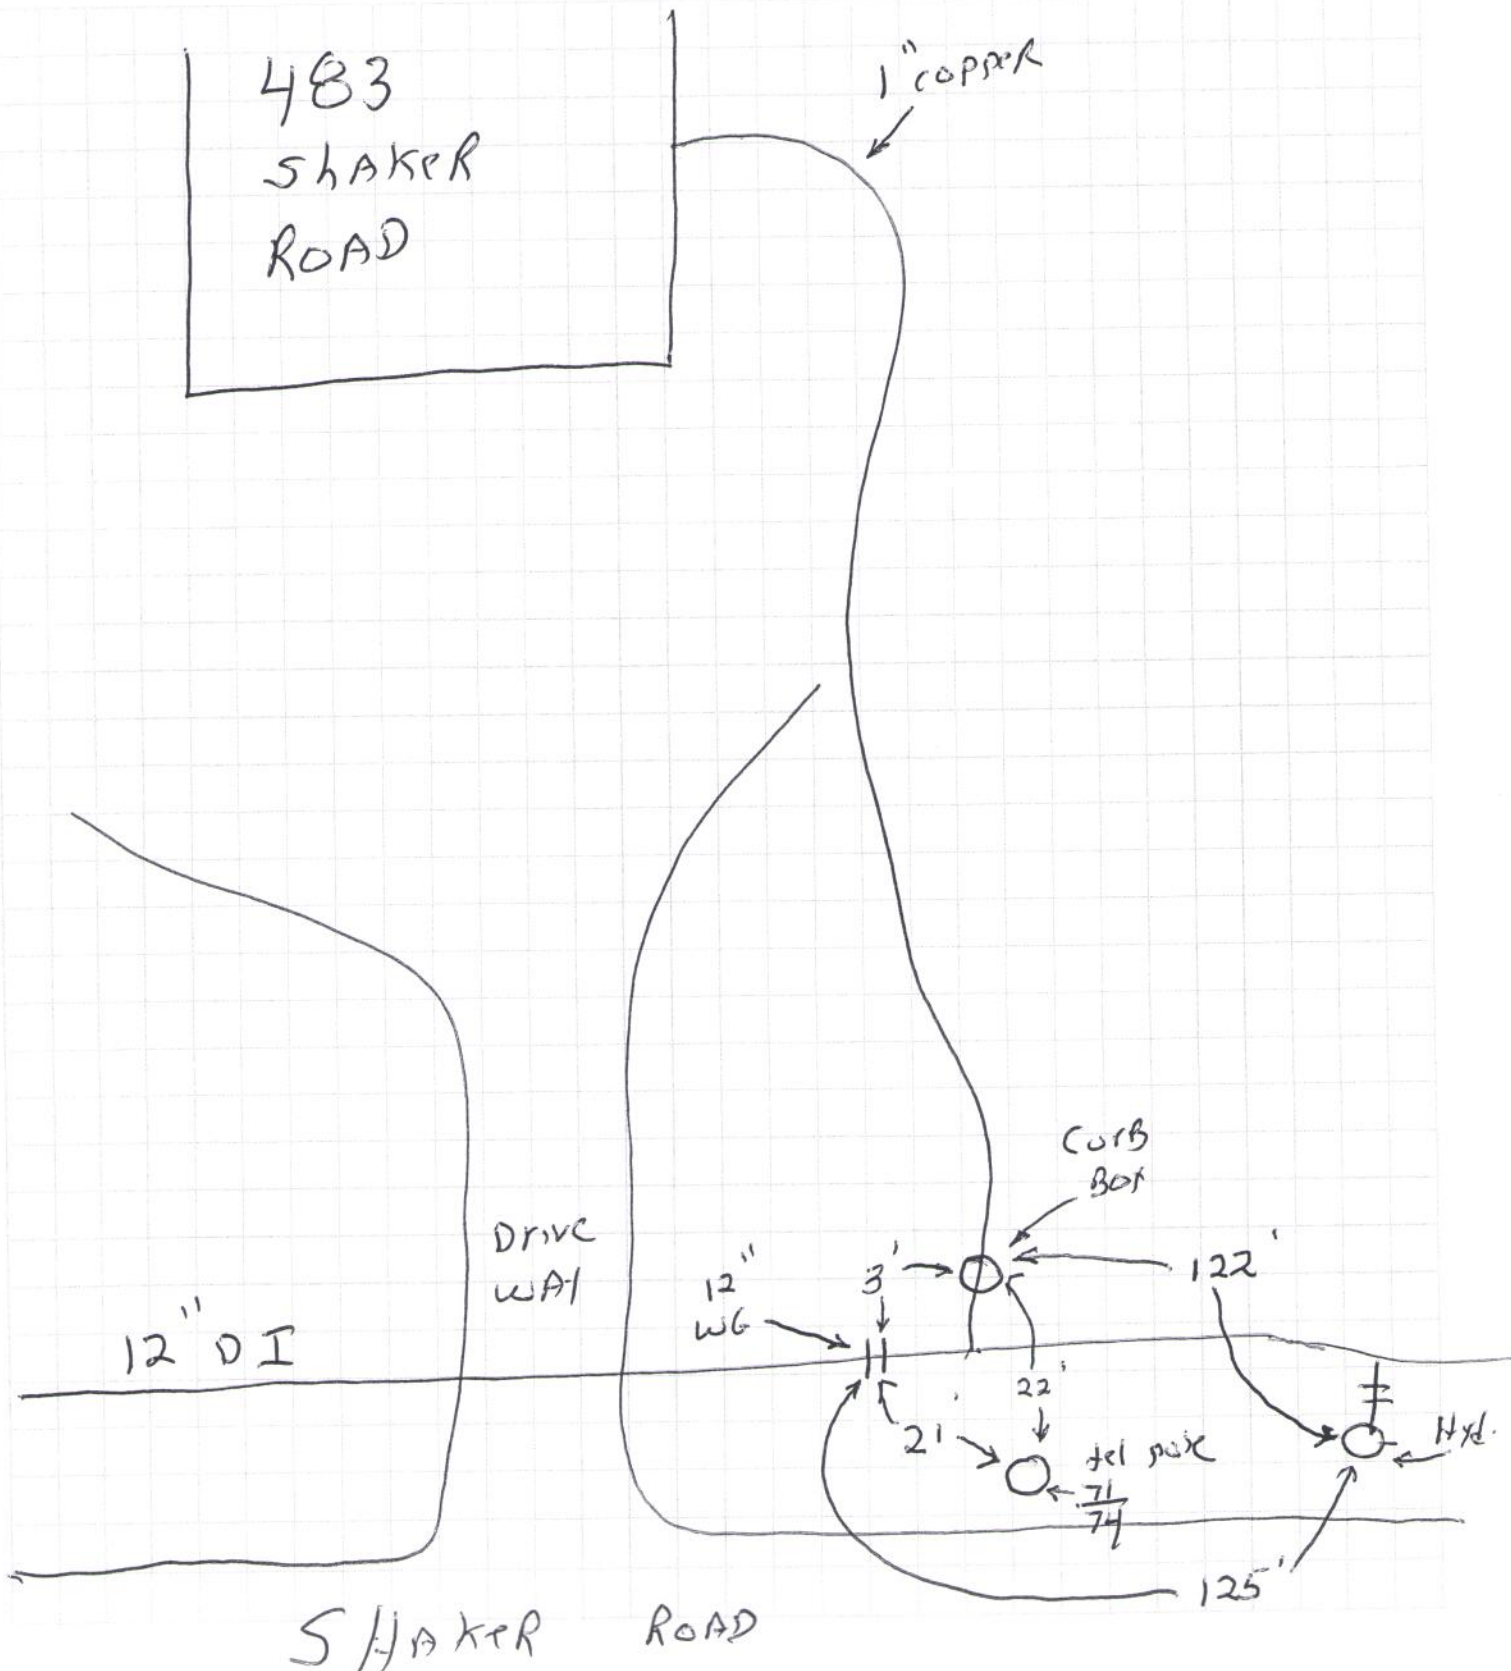 483
ShAKeR
ROAD
1" copper
Curb
Box
Drive
WAY
12" DI
12"
WG
3'
122'
22'
21'
tel pole
71/74
Hyd.
125'
SHAKeR ROAD